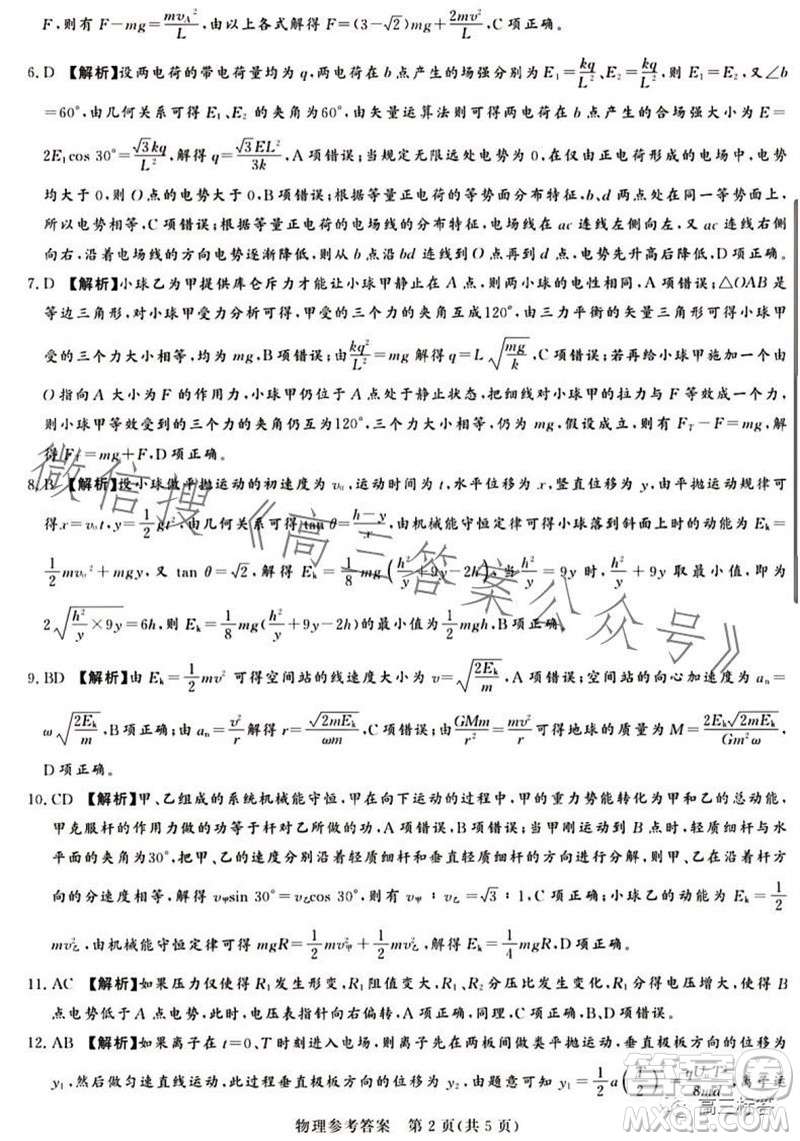 F,则有 F-mg=mv_A²/L,由以上各式解得 F=(3-√2)mg+2mv²/L,C 项正确。
6. D 【解析】设两电荷的带电荷量均为 q,两电荷在 b 点产生的场强分别为 E₁=kq/L²、E₂=kq/L²,则 E₁=E₂,又∠b
=60°,由几何关系可得 E₁、E₂ 的夹角为60°,由矢量运算法则可得两电荷在 b 点产生的合场强大小为 E=
2E₁cos 30°=√3kq/L²,解得 q=√3EL²/3k,A 项错误;当规定无限远处电势为 0,在仅由正电荷形成的电场中,电势
均大于 0,则 O 点的电势大于 0,B 项错误;根据等量正电荷的等势面分布特征,b、d 两点处在同一等势面上,
所以电势相等,C 项错误;根据等量正电荷的电场线的分布特征,电场线在 ac 连线左侧向左,在 ac 连线右侧
向右,沿着电场线的方向电势逐渐降低,则从 b 点沿着 bd 连线到 O 点再到 d 点,电势先升高后降低,D 项正确。
7. D 【解析】小球乙为甲提供库仑斥力才能让小球甲静止在 A 点,则两球的电性相同,A 项错误;△OAB 是
等边三角形,对小球甲受力分析可得,甲受到的三个力的夹角互成120°,由三力平衡的矢量三角形可得小球甲
受的三个力大小相等,均为 mg,B 项错误;由kq²/L²=mg 解得 q=L√(mg/k),C项错误;若再给小球甲施加一个由
O 指向 A 大小为 F 的作用力,小球甲仍位于 A 点处于静止状态,把细线对小球甲的拉力与 F 等效成一个力,
则小球甲等效受到的三个力的夹角仍互为120°,三个力的大小仍相等,仍为 mg,假设成立,则有 F_T-F=mg,解
得 F_T=mg+F,D 项正确。
8. B 【解析】设小球做平抛运动的初速度为 v₀,运动时间为 t,水平位移为 x,竖直位移为 y,由平抛运动规律可
得x=v₀t,y=1/2gt²,由几何关系可得tan θ=(h-y)/x,由机械能守恒定律可得小球落到斜面上时的动能为 Eₖ=
1/2mv₀²+mgy,又 tan θ=√2,解得 Eₖ=1/8mg(h²/y+9y-2h),当h²/y=9y 时,h²/y+9y 取最小值,即为
2√(h²/y×9y)=6h,则 Eₖ=1/8mg(h²/y+9y-2h)的最小值为1/2mgh,B 项正确。
9. BD 【解析】由 Eₖ=1/2mv² 可得空间站的线速度大小为 v=√(2Eₖ/m),A项错误;空间站的向心加速度为 aₙ=
ω√(2Eₖ/m),B项正确;由 aₙ=v²/r解得 r=√(2mEₖ)/ωm,C项错误;由GMm/r²=mv²/r可得地球的质量为 M=2Eₖ√(2mEₖ)/Gm²ω,
D 项正确。
10. CD 【解析】甲、乙组成的系统机械能守恒,甲在向下运动的过程中,甲的重力势能转化为甲和乙的总动能,
甲克服杆的作用力做的功等于杆对乙所做的功,A 项错误,B 项错误;当甲刚运动到 B 点时,轻质细杆与水
平面的夹角为30°,把甲、乙的速度分别沿着轻质细杆和垂直轻质细杆的方向进行分解,沿着轻质细杆方
向的分速度相等,解得 v甲sin 30°=v乙cos 30°,则有 v甲∶v乙=√3∶1,C 项正确;小球乙的动能为 Eₖ=1/2
mv乙²,由机械能守恒定律可得 mgR=1/2mv甲²+1/2mv乙²,解得 Eₖ=1/4mgR,D 项正确。
11. AC 【解析】如果压力仅使得 R₁ 发生形变,R₁ 阻值变大,R₁、R₂ 分压比发生变化,R₁ 分得电压增大,使得 B
点电势低于 A 点电势,此时,电压表指针向右偏转,A 项正确,同理,C 项正确,B、D 项错误。
12. AB 【解析】如果离子在 t=0、T 时刻进入电场,离子先在两板间做类平抛运动,垂直极板方向的位移为
y₁,然后做匀速直线运动,垂直极板方向的位移为 y₂,由题意可得 y₁=1/2a(T/2)²=
物理参考答案 第 2 页(共 5 页)
微信搜《高三答案公众号》
高三标答
答案圈
MXQE.COM